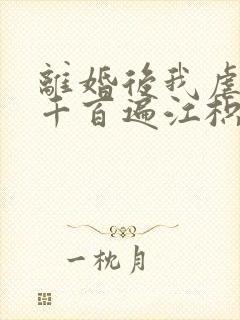 離婚後我虐
千百遍江枳
一枕月